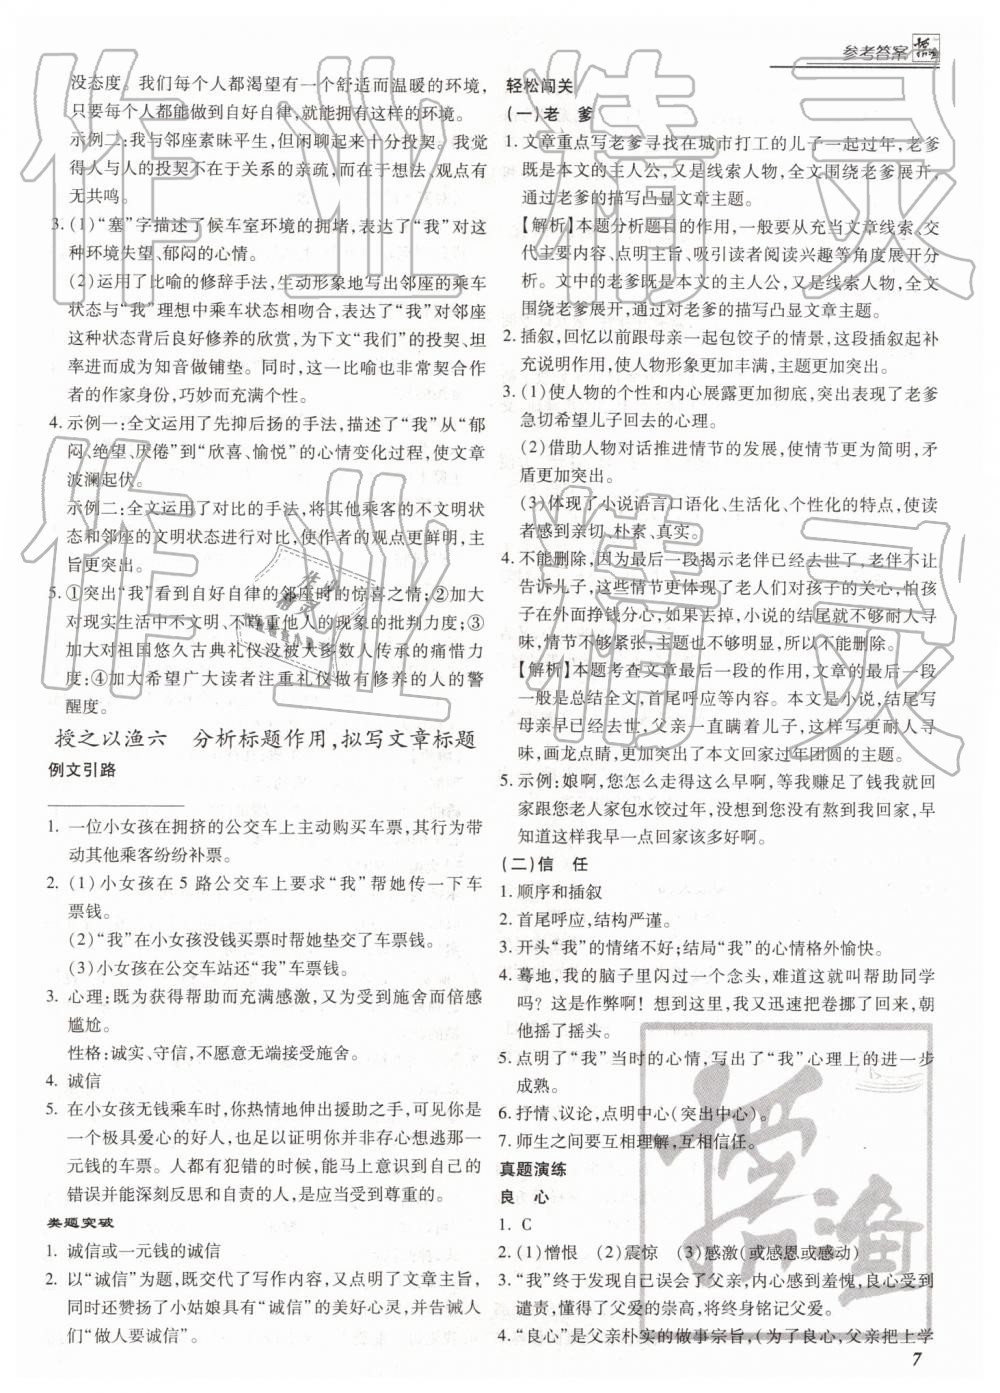 参考答案
没态度。我们每个人都渴望有一个舒适而温暖的环境,
只要每个人都能做到自好自律,就能拥有这样的环境。
示例二:我与邻座素昧平生,但闲聊起来十分投契。我觉
得人与人的投契不在于关系的亲疏,而在于想法、观点有
无共鸣。
3. (1)“塞”字描述了候车室环境的拥堵,表达了“我”对这
种环境失望、郁闷的心情。
(2)运用了比喻的修辞手法,生动形象地写出邻座的乘车
状态与“我”理想中乘车状态相吻合,表达了“我”对邻座
这种状态背后良好修养的欣赏,为下文“我们”的投契,坦
率进而成为知音做铺垫。同时,这一比喻也非常契合作
者的作家身份,巧妙而充满个性。
4. 示例一:全文运用了先抑后扬的手法,描述了“我”从“郁
闷、绝望、厌倦”到“欣喜、愉悦”的心情变化过程,使文章
波澜起伏。
示例二:全文运用了对比的手法,将其他乘客的不文明状
态和邻座的文明状态进行对比,使作者的观点更鲜明,主
旨更突出。
5. ①突出“我”看到自好自律的邻座时的惊喜之情;②加大
对现实生活中不文明、不尊重他人的现象的批判力度;③
加大对祖国悠久古典礼仪没被大多数人传承的痛惜力
度;④加大希望广大读者注重礼仪做有修养的人的警
醒度。
授之以渔六 分析标题作用,拟写文章标题
例文引路
1. 一位小女孩在拥挤的公交车上主动购买车票,其行为带
动其他乘客纷纷补票。
2. (1)小女孩在 5 路公交车上要求“我”帮她传一下车
票钱。
(2)“我”在小女孩没钱买票时帮她垫交了车票钱。
(3)小女孩在公交车站还“我”车票钱。
3. 心理:既为获得帮助而充满感激,又为受到施舍而倍感
尴尬。
性格:诚实、守信,不愿意无端接受施舍。
4. 诚信
5. 在小女孩无钱乘车时,你热情地伸出援助之手,可见你是
一个极具爱心的好人,也足以证明你并非存心想逃那一
元钱的车票。人都有犯错的时候,能马上意识到自己的
错误并能深刻反思和自责的人,是应当受到尊重的。
类题突破
1. 诚信或一元钱的诚信
2. 以“诚信”为题,既交代了写作内容,又点明了文章主旨,
同时还赞扬了小姑娘具有“诚信”的美好心灵,并告诫人
们“做人要诚信”。
轻松闯关
(一)老 爹
1. 文章重点写老爹寻找在城市打工的儿子一起过年,老爹
既是本文的主人公,又是线索人物,全文围绕老爹展开,
通过老爹的描写凸显文章主题。
【解析】本题分析题目的作用,一般要从充当文章线索、交
代主要内容、点明主旨、吸引读者阅读兴趣等角度展开分
析。文中的老爹既是本文的主人公,又是线索人物,全文
围绕老爹展开,通过对老爹的描写凸显文章主题。
2. 插叙,回忆以前跟母亲一起包饺子的情景,这段插叙起补
充说明作用,使人物形象更加丰满,主题更加突出。
3. (1)使人物的个性和内心展露更加彻底,表现了老爹
急切希望儿子回去的心理。
(2)借助人物对话推进情节的发展,使情节更加突出,主
题更加突出。
(3)体现了小说语言口语化、生活化、个性化的特点,使读
者感到亲切、朴素、真实。
4. 不能删除,因为最后一段揭示老伴已经去世了,老伴不让
告诉儿子,这些情节更体现了老人们对儿子的关心,怕孩
子在外面挣钱分心,如果去掉,小说的结尾就不能够耐人寻
味,情节不够紧张,主题也不够明显,所以不能删除。
【解析】本题考查文章最后一段的作用,文章的最后一段
一般是总结全文、首尾呼应等内容。本文是小说,结尾写
母亲早已经去世,父亲一直瞒着儿子,这样更加耐人寻
味,画龙点睛,更加突出了本文回家过年团圆的主题。
5. 示例:娘啊,您怎么走得这么早啊,等我赚足了钱我就回
家跟您老人家包水饺过年,没想到您没有熬到我回家,早
知道这样我早一点回家该多好啊。
(二)信 任
1. 顺序和插叙
2. 首尾呼应,结构严谨。
3. 开头“我”的情绪不好;结局“我”的心情格外愉快。
4. 蓦地,我的脑子里闪过一个念头,难道这就叫帮助同学
吗?这是作弊啊!想到这里,我又迅速把卷挪了回来,朝
他摇了摇头。
5. 点明了“我”当时的心情,写出了“我”心理上的进一步
成熟。
6. 抒情、议论,点明中心(突出中心)。
7. 师生之间要互相理解,互相信任。
真题演练
良 心
1. C
2. (1)憎恨 (2)震惊 (3)感激(或感恩或感动)
3. “我”终于发现自己误会了父亲,内心感到羞愧,良心受到
谴责,懂得了父爱的崇高,将终身铭记父爱。
4. “良心”是父亲朴实的做事宗旨,(为了良心,父亲把上学
7
作业精灵
作业精灵
授渔